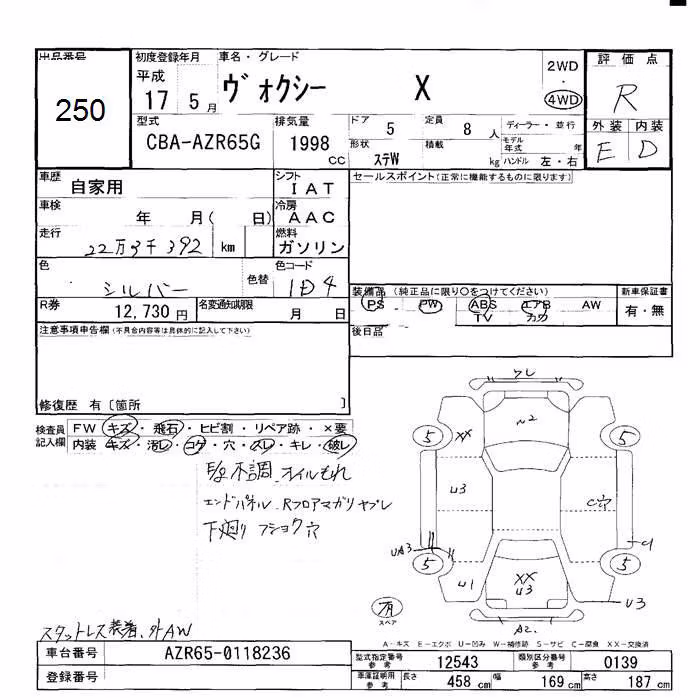 出品番号 250
初度登録年月 平成 17 5月
車名・グレード ヴォクシー X
2WD・4WD
評価点 R
外装 E 内装 D
型式 CBA-AZR65G
排気量 1998 CC
ドア 5
定員 8人
ディーラー・並行
形状 ステW
積載 kg
モデル年式 年
ハンドル 左・右
車歴 自家用
シフト IAT
セールスポイント(正常に機能するものに限ります)
車検 年 月( 日)
冷房 AAC
走行 22万3千392 km
燃料 ガソリン
色 シルバー
色替
色コード 1D4
装備品 (純正品に限り○をつけてください)
新車保証書
PS PW ABS エアB AW
TV カワ
有・無
R券 12,730円
名変通知期限 月 日
後日品
注意事項申告欄(不具合内容等は具体的に記入して下さい)
修復歴 有〔箇所 〕
検査員記入欄
FW キズ・飛石・ヒビ割・リペア跡・×要
内装 キズ・汚レ・コゲ・穴・スレ・キレ・破レ
E/g 不調.オイルもれ
エンドパネル.Rフロアマガリヤブレ
下廻り フショク穴
ワレ
5 XX ベ2 5
U3 C穴
UA3 5 5
U1 XX U3 U3
スペア
A2
スタットレス装着、外AW
A-キズ E-エクボ U-凹み W-補修跡 S-サビ C-腐食 XX-交換済
車台番号 AZR65-0118236
登録番号
型式指定番号 参考 12543
類別区分番号 参考 0139
車庫証明用 参考 長さ 458 cm 幅 169 cm 高さ 187 cm